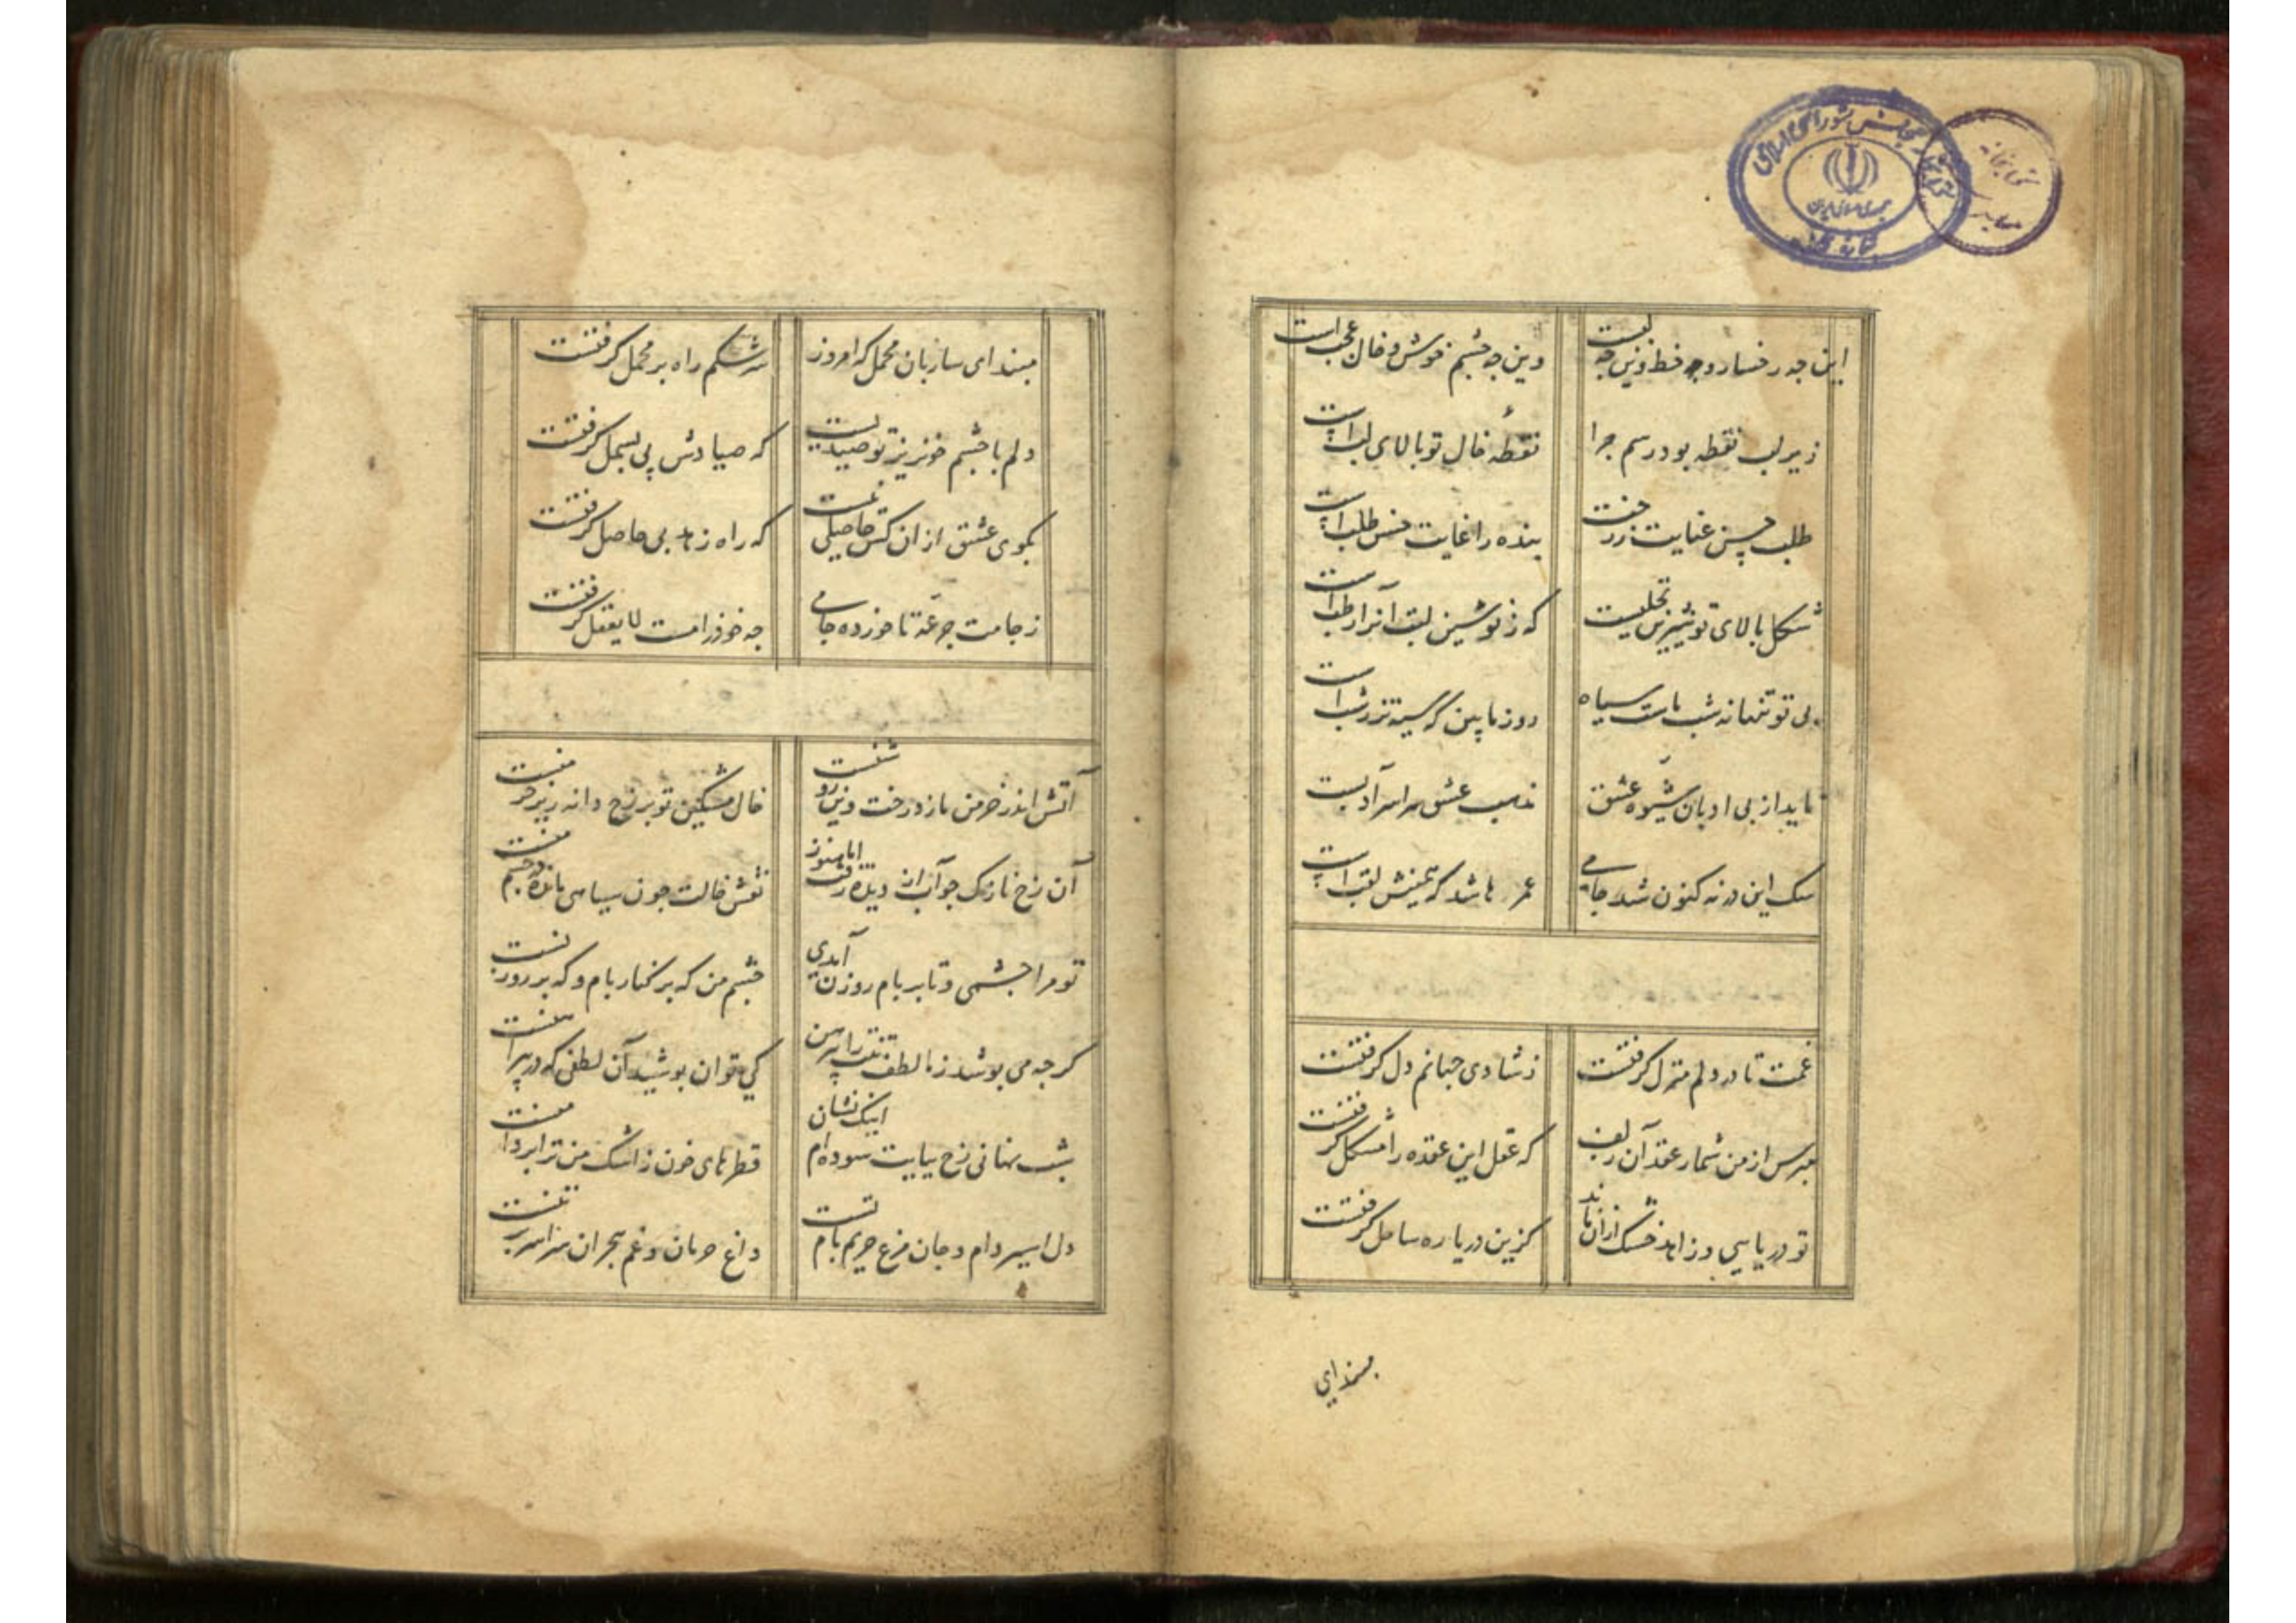 این چه رخسار و چه خط وین چه لبست
وین چه چشم خوش و خال عجب است
زیر لب نقطه بود رسم چرا
نقطهٔ خال تو بالای لب است
طلب حسن عنایت ز رخت
بنده را غایت حسن طلب است
شکل بالای تو شیرین نخلیست
که ز نوشین لبت آنرا رطب است
بی تو تنها نه شب ماست سیاه
روز ما بین که سیه تر ز شب است
ناید از بی ادبان شیوه عشق
مذهب عشق سراسر آدبست
سک این در نه کنون شد جامی
عمر ها شد که همینش لقب است
غمت تا در دلم منزل کرفتست
ز شادی جهانم دل کرفتست
مپرس از من شمار عقد آن زلف
که عقل این عقده را مشکل کرفتست
تو دریایی و زاهد خشک از آن ماند
کزین دریا ره ساحل کرفتست
مبند ای
مبند ای ساربان محمل که امروز
سرشکم راه بر محمل کرفتست
دلم با چشم خونریز تو صیدیست
که صیادش پی بسمل کرفتست
بکوی عشق ازان کس حاصلی نیست
که راه زهد بی حاصل کرفتست
ز جامت جرعهٔ تا خورده جامی
چه خود را مست لا یعقل کرفتست
آتش اندر خرمن ما زد رخت وین روشنست
خال مشکین تو بر رخ دانه زین خرمنست
آن رخ نازک چو آب از دیده رفت اما هنوز
نقش خالت چون سیاهی مانده در چشم منست
تو مرا چشمی و تا بر بام روزن آمدی
چشم من که بر کنار بام و که بر روزنست
کرچه می پوشد ز ما لطف تنت را پیرهن
کی توان پوشید آن لطفی که در پیراهنست
شب نهانی رخ بپایت سوده ام اینک نشان
قطرهای خون ز اشک من ترا بر دامنست
دل اسیر دام و جان مرغ حریم بام تست
داغ حرمان و غم هجران سراسر بر تنست
مجلس شورای اسلامی
جمهوری اسلامی ایران
کتابخانه